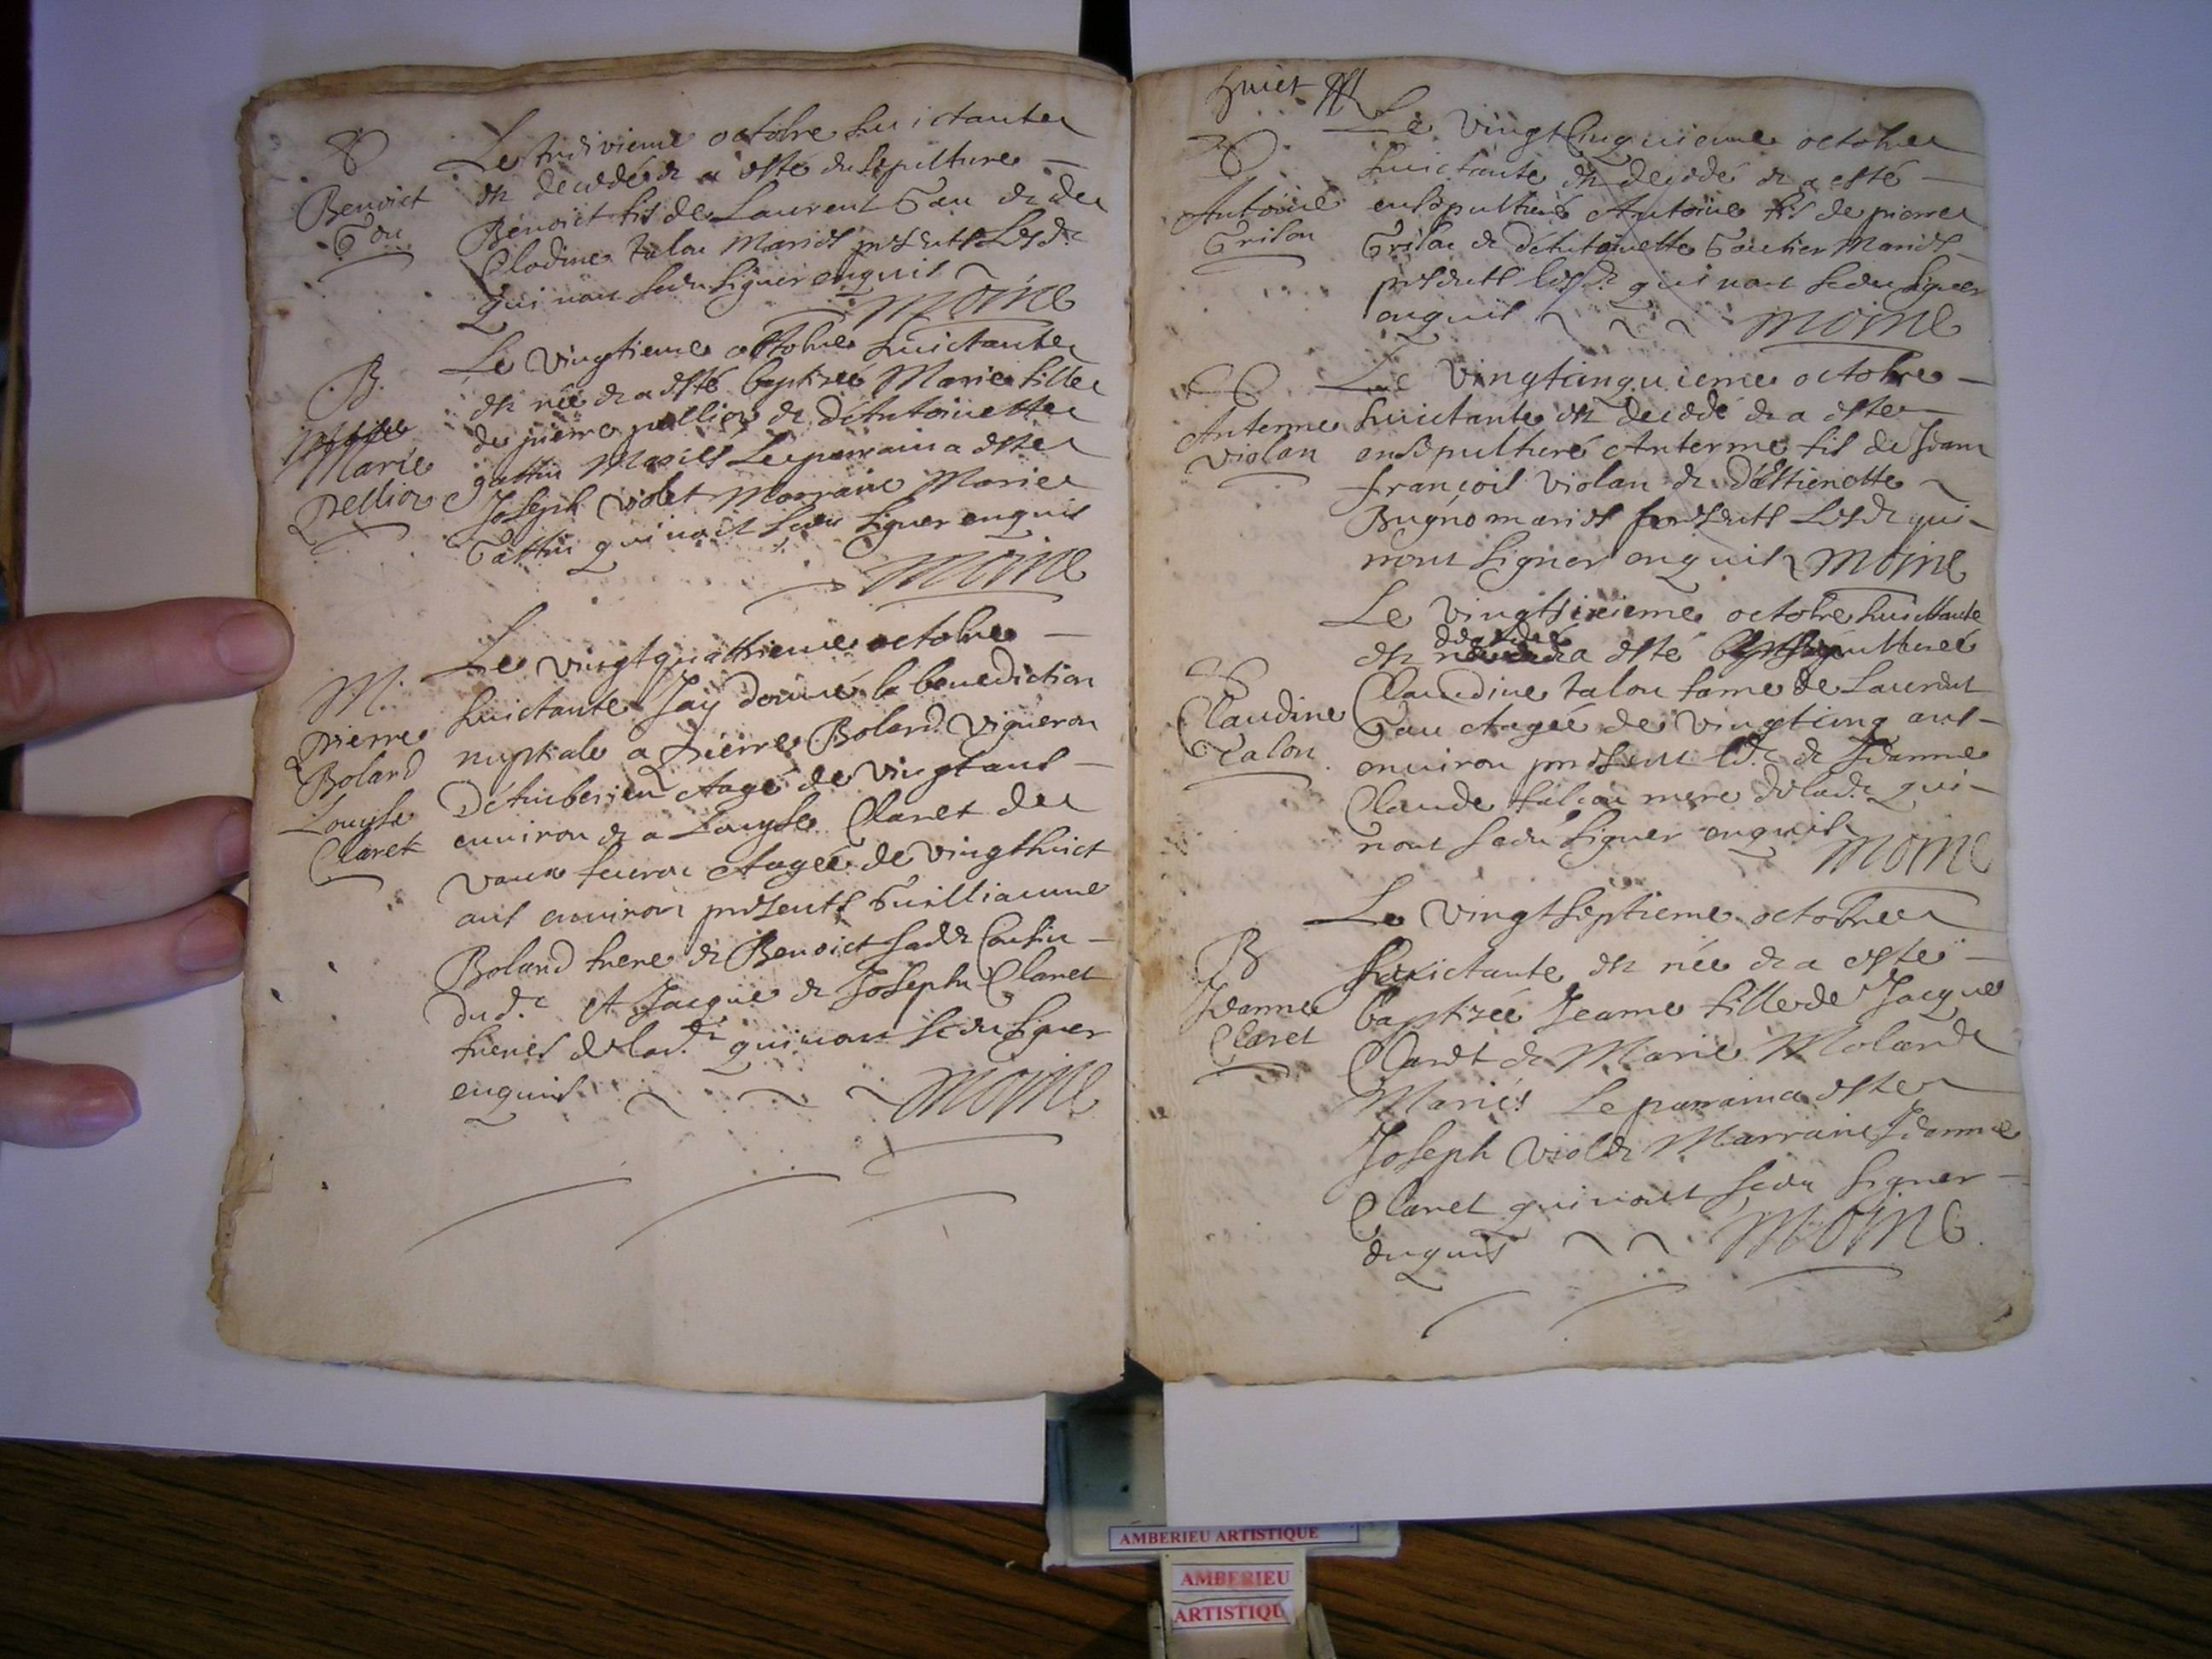 Benoict
Gou
Le treizieme octobre huictante
est decedé et a esté ensepulturé
Benoict fis de Laurent Gou et de
Clodine talon Mariés presents Lesd.
qui nont sceu signer enquis
Moine
B.
Marie
Pellion
Le vingtieme octobre huictante
est née et a esté baptizée Marie fille
de pierre pellion et d'Antoinette
gattin Mariés Le parrain a esté
Joseph violet Marraine Marie
Gattin qui nont sceu signer enquis
Moine
M.
pierre
Boland
Louyse
Claret
Le vingtquattrieme octobre
huictante Jay donné la benediction
nuptiale a Pierre Boland vigneron
d'Amberieu Aagé de vingt ans
environ et a Louyse Claret de
vaux Aagée de vingthuict
ans environ presents Guilliaume
Boland frere et Benoict Cousin
dud. et Jacque et Joseph Claret
freres de lad. qui nont sceu signer
enquis
Moine
huict
Antoine
Grilon
Le vingtcinquieme octobre
huictante est decedé et a esté
ensepulturé Antoine fis de pierre
Grilon et d'Antoinette Goutier Mariés
presents lesd. qui nont sceu signer
enquis
Moine
Anterme
violan
Le vingtcinquieme octobre
huictante est decedé et a esté
ensepulturé Anterme fis de Jean
françois violan et d'Estienette
Bugno mariés presents Lesd. qui
nont signer enquis Moine
Claudine
Talon
Le vingtsixieme octobre huictante
decedée
est et a esté ensepulturée
Claudine talon fame de Laurent
Gou Aagée de vingtcinq ans
environ present led. et Jeanne
Claude mere de lad. qui
nont sceu signer enquis
Moine
B
Jeanne
Claret
Le vingtseptieme octobre
huictante est née et a esté
baptizée Jeanne fille de Jacque
Claret et Marie Moland
Mariés Le parrain a esté
Joseph violet Marraine Jeanne
Claret qui nont sceu signer
enquis
Moine
AMBERIEU ARTISTIQUE
AMBERIEU
ARTISTIQU